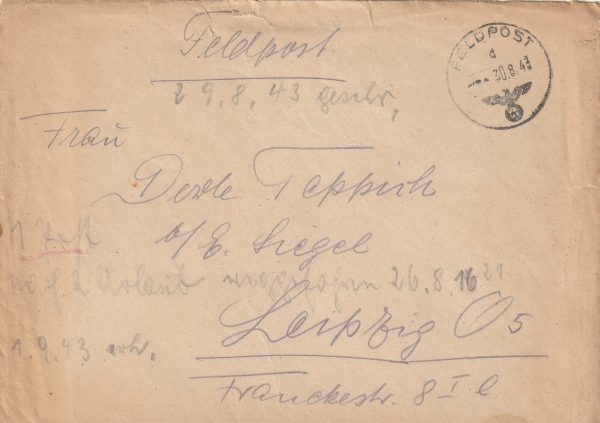 Feldpost
FELDPOST
d
30.8.43
29.8.43 geschr.
Frau
Teppich
b/E. Siegel
1. Post
nach 2 Urlaub weggefahren 26.8. 16 21
Leipzig O5
1.9.43 erh.
Franckestr. 8 I l